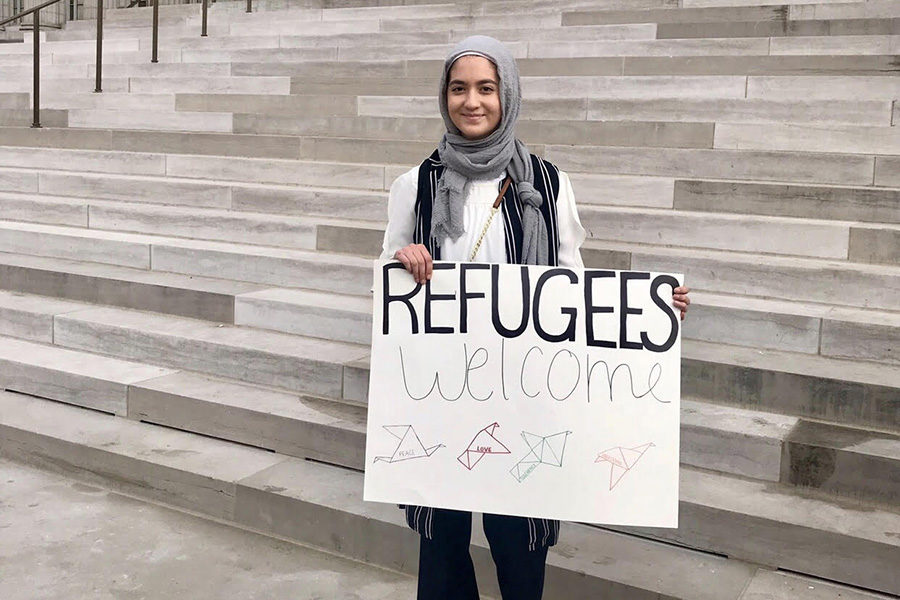 REFUGEES
welcome
PEACE LOVE